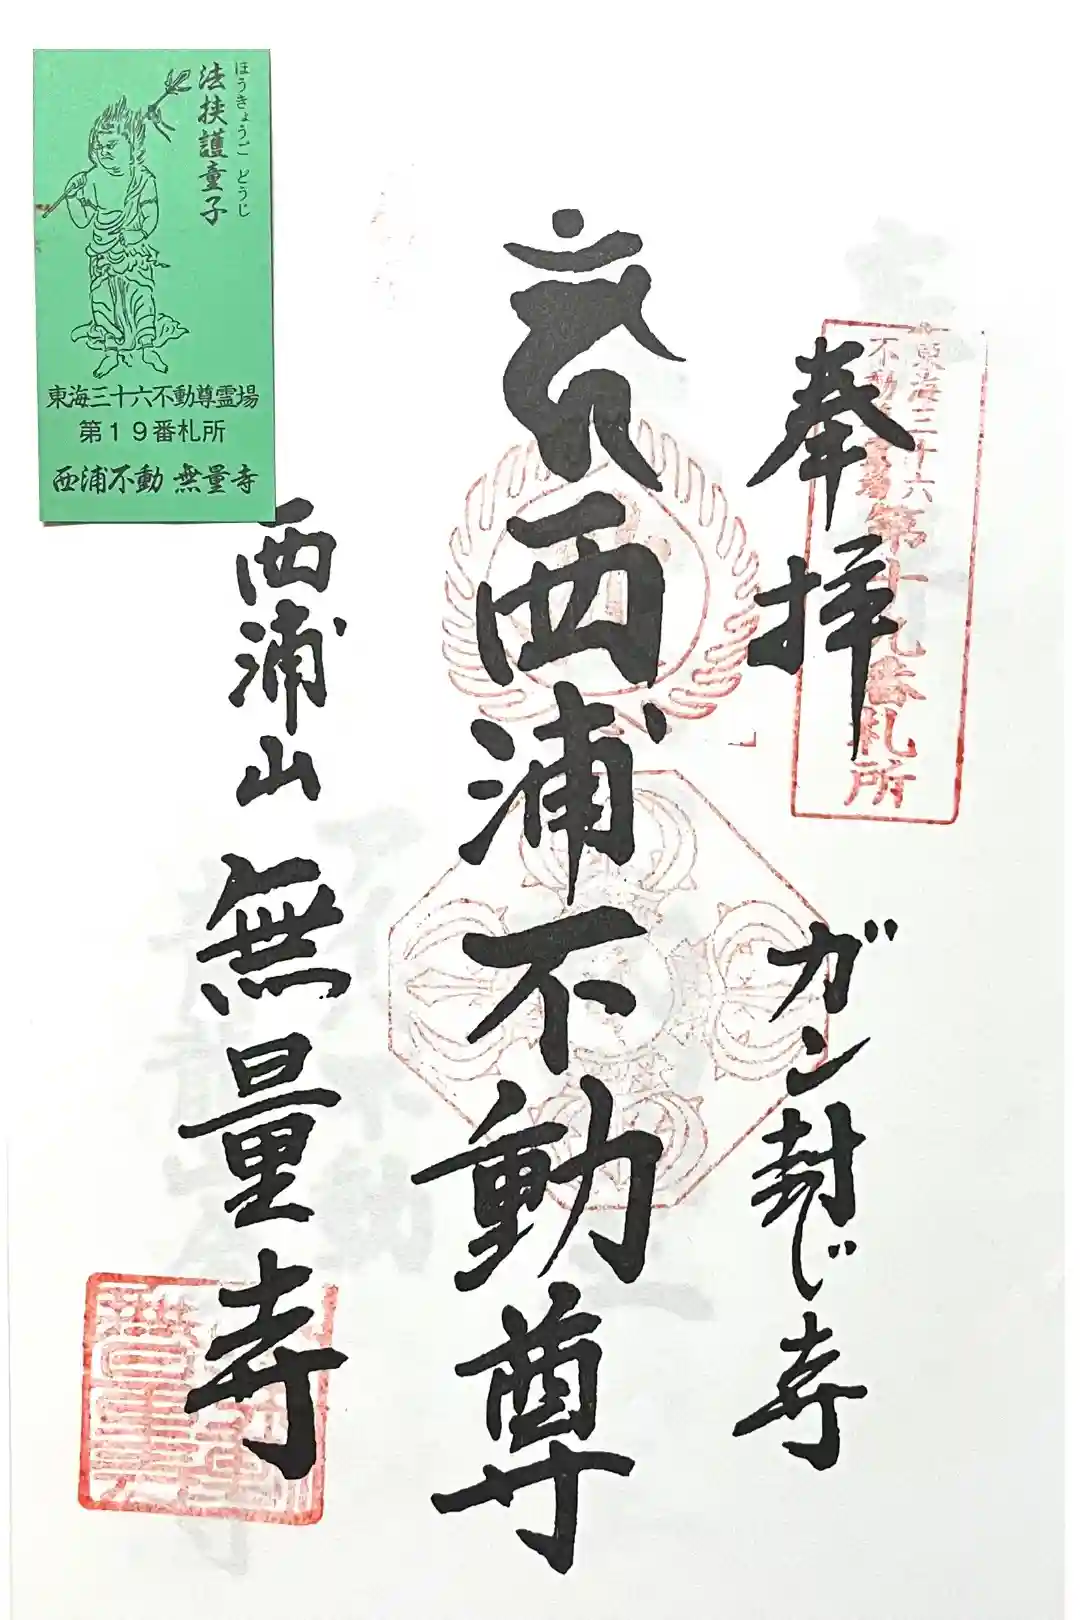 奉拝
東海三十六
不動尊霊場
第十九番札所
ガン封じ寺
西浦不動尊
西浦山
無量寺
ほうきょうご どうじ
法挟護童子
東海三十六不動尊霊場
第19番札所
西浦不動 無量寺